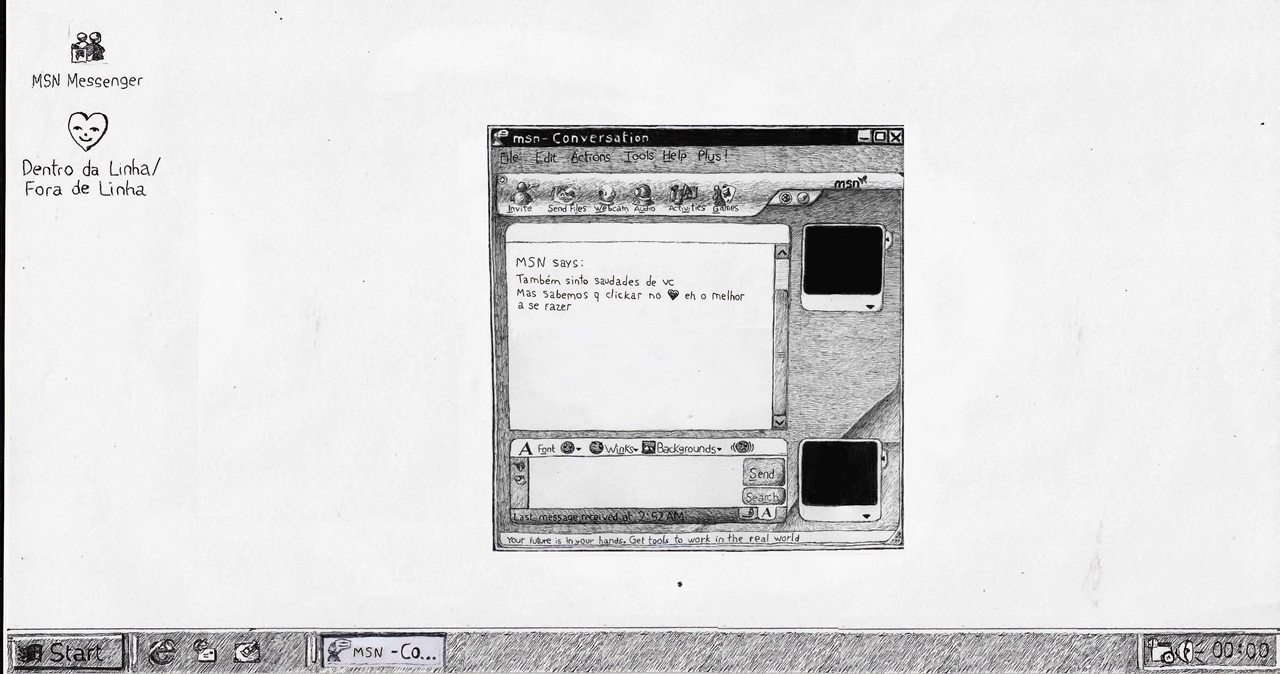 MSN Messenger
Dentro da Linha/
Fora de Linha
msn-Conversation
File Edit Actions Tools Help Plus!
msn
Invite Send Files Webcam Audio Activities Games
MSN says:
Também sinto saudades de vc
Mas sabemos q clickar no ♥ eh o melhor
a se razer
A Font Winks Backgrounds
Send
Search
A
Last message received at 2:52 AM
Your future is in your hands. Get tools to work in the real world
Start
MSN -Co...
00:00